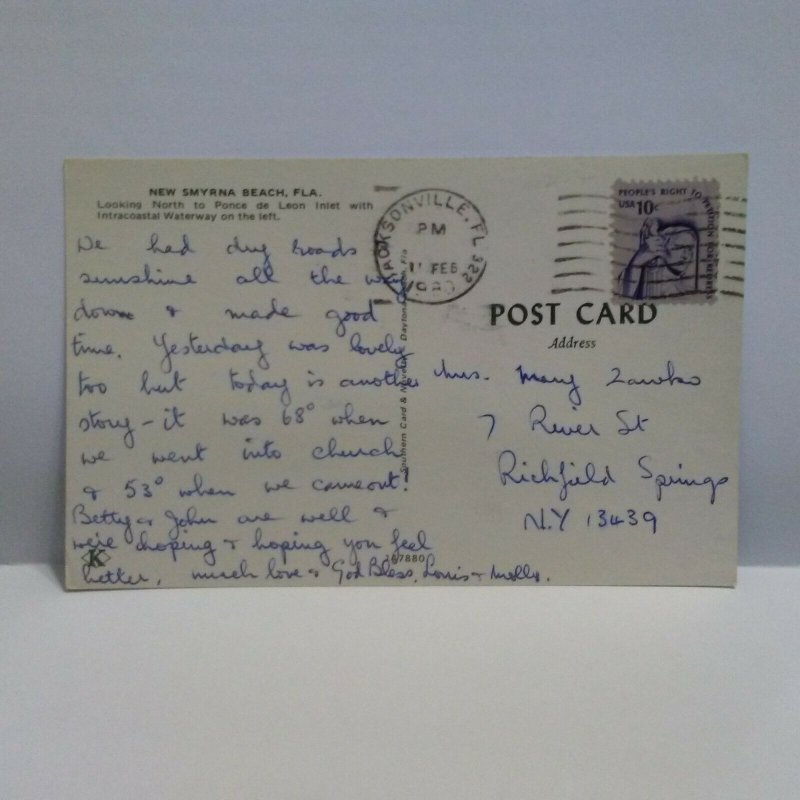 NEW SMYRNA BEACH, FLA.
Looking North to Ponce de Leon Inlet with
Intracoastal Waterway on the left.
We had dry roads &
sunshine all the way
down & made good
time. Yesterday was lovely
too but today is another
story - it was 68° when
we went into church
& 53° when we came out!
Betty & John are well &
we're hoping & hoping you feel
better, much love & God Bless, Louis & Molly.
K
167880
Southern Card & Novelty, Daytona Fla
JACKSONVILLE, FL 322
PM
11 FEB
1980
PEOPLE'S RIGHT TO PETITION FOR REDRESS
USA 10c
POST CARD
Address
Mrs. Mary
7 River St
Richfield Springs
N.Y 13439